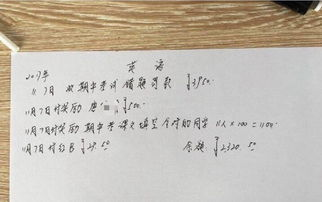 英语
2017年
11月7日 收期中考试错题等款 ¥3950.
11月7日付奖励 唐 ¥500.
11月7日付奖励 期中考课文填空全对的同学 11人×100=1100.
11月7日付红B ¥29.50 余额 ¥2320.50